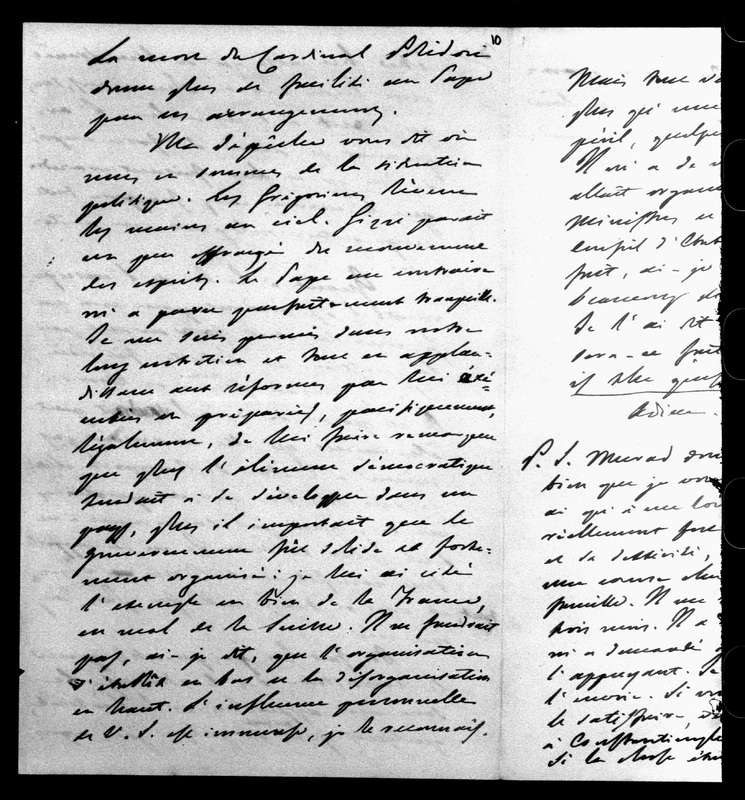 10
La mort du Cardinal Polidori
donne plus de facilité au Pape
pour ses arrangemens.
Ma dépêche vous dit où
nous en sommes de la situation
politique. Les Grégoriens lèvent
les mains au ciel. Gizzi paraît
un peu effrayé du mouvement
des esprits. Le Pape au contraire
m'a paru parfaitement tranquille.
Je me suis permis dans notre
long entretien et tout en applau-
dissant aux réformes par lui exé-
cutées et préparées, pacifiquement,
légalement, de lui faire remarquer
que plus l'élément démocratique
tendait à se développer dans un
pays, plus il importait que le
gouvernement fût solide et forte-
ment organisé : je lui ai cité
l'exemple en bien de la France,
en mal de la Suisse. Il ne faudrait
pas, ai-je dit, que l'organisation
s'établît en bas et la désorganisation
en haut. L'influence personnelle
de V. S. est immense, je le reconnais.
Mais
plus qu'une
péril, quelque
Il m'a
allait organi
Ministres et
Conseil d'Etat
fait, ai-je
beaucoup
Je l'ai dit
sera-ce fait
Adieu.
P. S. Murad
bien que je
ai qui
réellement fort
et
une
famille. Il
trois mois. Il a
m'a demandé
l'appuyant. Je
l'envoie. Si
le satisfaire,
à Constantinople
Si la chose